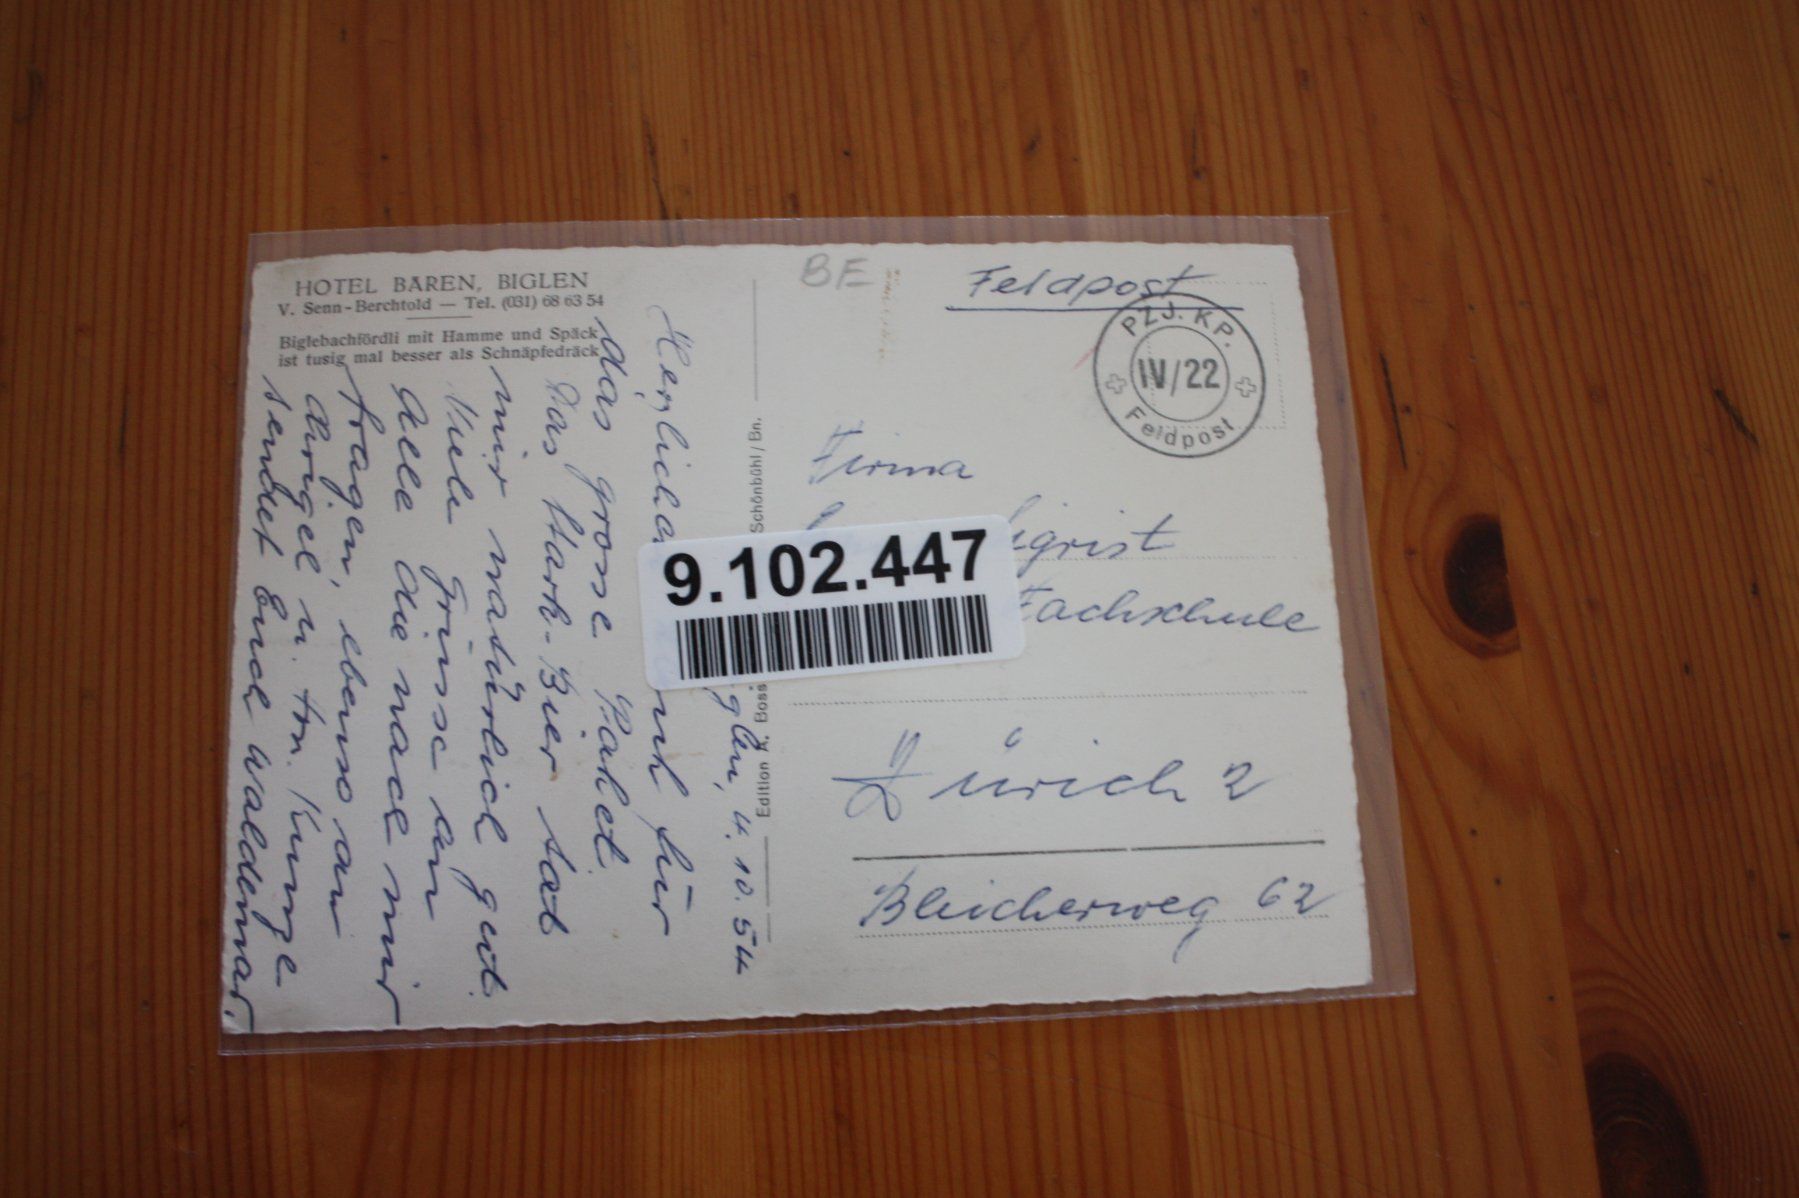 HOTEL BÄREN, BIGLEN
V. Senn-Berchtold — Tel. (031) 68 63 54
Biglebachfördli mit Hamme und Späck
ist tusig mal besser als Schnäpfedräck
BE
Feldpost
PZJ. KP.
IV/22
Feldpost
Firma
igrist
Fachschule
Zürich 2
Bleicherweg 62
9.102.447
Edition A. Boss
Schönbühl/Bn.
glen, 4. 10. 54
für
das grosse Paket.
Das Stark-Bier tat
mir natürlich gut.
Viele Grüsse an
Alle die nach mir
fragen, ebenso an
u. Frl. Kunge
sendet Euch Waldemar.